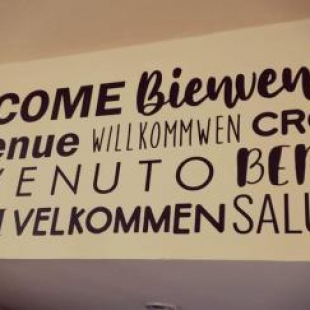 COME Bienven
enue WILLKOMMWEN CRO
VENUTO BEN
VELKOMMEN SALU